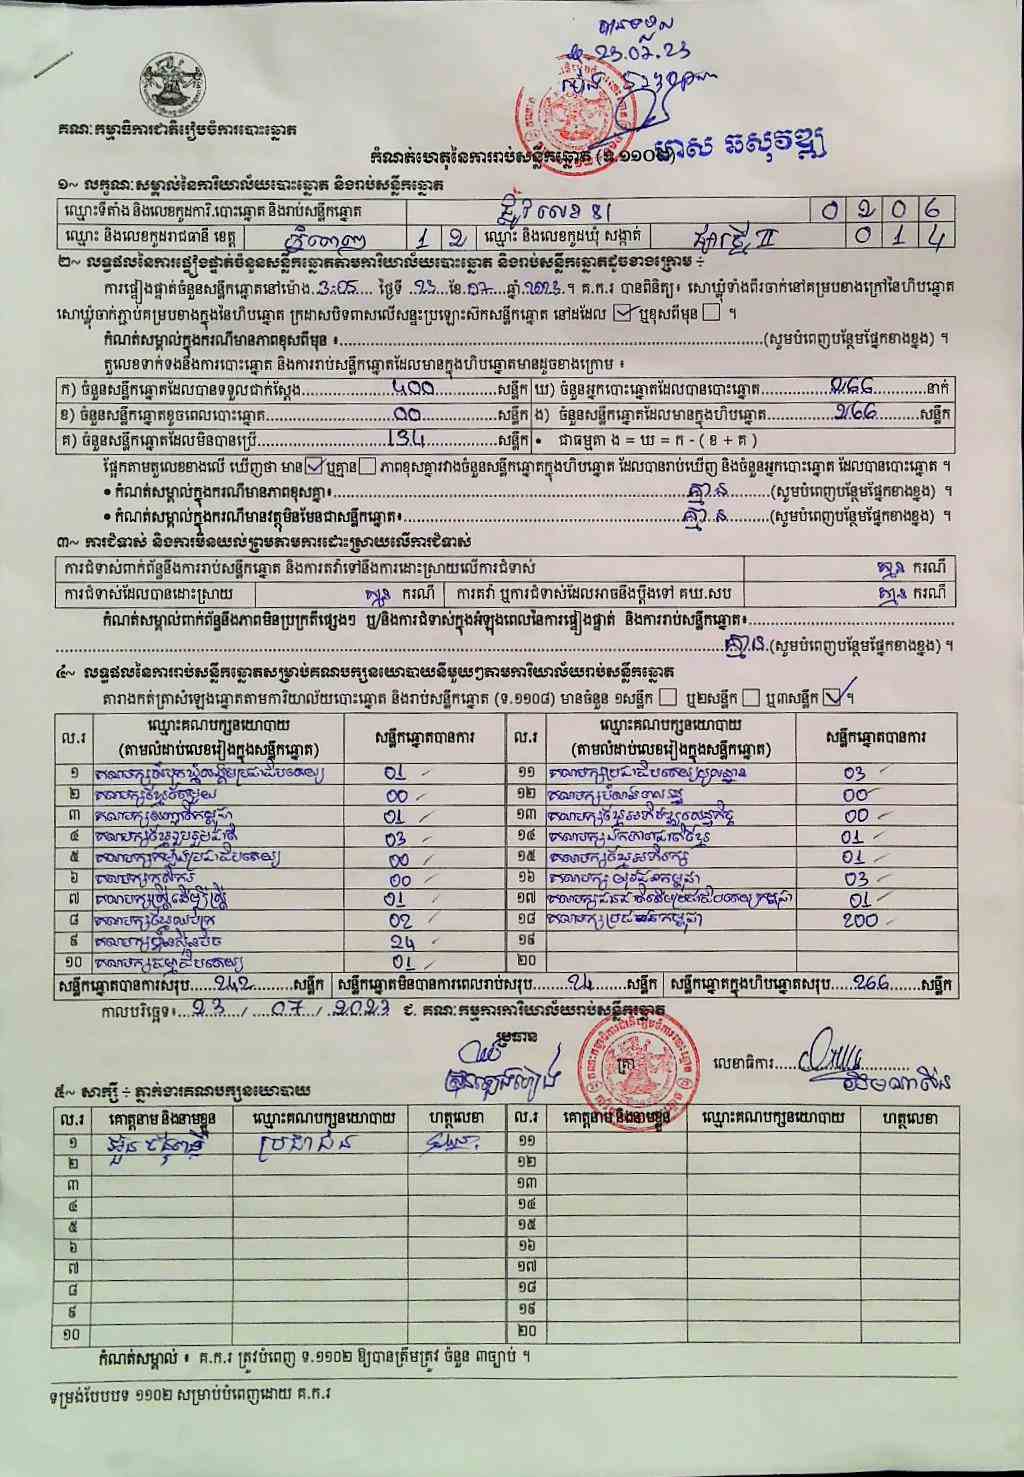 បានទទួល
23.07.23
គណៈកម្មាធិការជាតិរៀបចំការបោះឆ្នោត
កំណត់ហេតុនៃការរាប់សន្លឹកឆ្នោត (ទ.១១០២)
១~ លក្ខណៈសម្គាល់នៃការិយាល័យបោះឆ្នោត និងរាប់សន្លឹកឆ្នោត
ឈ្មោះទីតាំង និងលេខកូដការិ.បោះឆ្នោត និងរាប់សន្លឹកឆ្នោត ផ្លូវលេខ 81 0 2 0 6
ឈ្មោះ និងលេខកូដរាជធានី ខេត្ត ភ្នំពេញ 1 2 ឈ្មោះ និងលេខកូដឃុំ សង្កាត់ ផ្សារថ្មី II 0 1 4
២~ លទ្ធផលនៃការផ្ទៀងផ្ទាត់ចំនួនសន្លឹកឆ្នោតតាមការិយាល័យបោះឆ្នោត និងរាប់សន្លឹកឆ្នោតដូចខាងក្រោម ÷
ការផ្ទៀងផ្ទាត់ចំនួនសន្លឹកឆ្នោតនៅម៉ោង 3:05 ថ្ងៃទី 23 ខែ 07 ឆ្នាំ 2023 ។ គ.ក.រ បានពិនិត្យ៖ សោឃ្លុំទាំងពីរចាក់នៅគម្របខាងក្រៅនៃហិបឆ្នោត
សោឃ្លុំចាក់ភ្ជាប់គម្របខាងក្នុងនៃហិបឆ្នោត ក្រដាសបិទពាសលើសន្ទះប្រឡោះសឹកសន្លឹកឆ្នោត នៅដដែល ☑ ឬខុសពីមុន ☐ ។
កំណត់សម្គាល់ក្នុងករណីមានភាពខុសពីមុន ៖ (សូមបំពេញបន្ថែមផ្នែកខាងខ្នង) ។
តួលេខទាក់ទងនឹងការបោះឆ្នោត និងការរាប់សន្លឹកឆ្នោតដែលមានក្នុងហិបឆ្នោតមានដូចខាងក្រោម ៖
ក) ចំនួនសន្លឹកឆ្នោតដែលបានទទួលជាក់ស្តែង 400 សន្លឹក ឃ) ចំនួនអ្នកបោះឆ្នោតដែលបានបោះឆ្នោត 266 នាក់
ខ) ចំនួនសន្លឹកឆ្នោតខូចពេលបោះឆ្នោត 00 សន្លឹក ង) ចំនួនសន្លឹកឆ្នោតដែលមានក្នុងហិបឆ្នោត 266 សន្លឹក
គ) ចំនួនសន្លឹកឆ្នោតដែលមិនបានប្រើ 134 សន្លឹក • ជាធម្មតា ង = ឃ = ក - ( ខ + គ )
ផ្អែកតាមតួលេខខាងលើ ឃើញថា មាន ☑ ឬគ្មាន ☐ ភាពខុសគ្នារវាងចំនួនសន្លឹកឆ្នោតក្នុងហិបឆ្នោត ដែលបានរាប់ឃើញ និងចំនួនអ្នកបោះឆ្នោត ដែលបានបោះឆ្នោត ។
• កំណត់សម្គាល់ក្នុងករណីមានភាពខុសគ្នា៖ គ្មាន (សូមបំពេញបន្ថែមផ្នែកខាងខ្នង) ។
• កំណត់សម្គាល់ក្នុងករណីមានវត្ថុមិនមែនជាសន្លឹកឆ្នោត៖ គ្មាន (សូមបំពេញបន្ថែមផ្នែកខាងខ្នង) ។
៣~ ការជំទាស់ និងការមិនយល់ព្រមតាមការដោះស្រាយលើការជំទាស់
ការជំទាស់ពាក់ព័ន្ធនឹងការរាប់សន្លឹកឆ្នោត និងការតវ៉ាទៅនឹងការដោះស្រាយលើការជំទាស់ គ្មាន ករណី
ការជំទាស់ដែលបានដោះស្រាយ គ្មាន ករណី ការតវ៉ា ឬការជំទាស់ដែលអាចនឹងប្តឹងទៅ គឃ.សប គ្មាន ករណី
កំណត់សម្គាល់ពាក់ព័ន្ធនឹងភាពមិនប្រក្រតីផ្សេងៗ ឬ/និងការជំទាស់ក្នុងអំឡុងពេលនៃការផ្ទៀងផ្ទាត់ និងការរាប់សន្លឹកឆ្នោត៖
គ្មាន (សូមបំពេញបន្ថែមផ្នែកខាងខ្នង) ។
៤~ លទ្ធផលនៃការរាប់សន្លឹកឆ្នោតសម្រាប់គណបក្សនយោបាយនីមួយៗតាមការិយាល័យរាប់សន្លឹកឆ្នោត
តារាងកត់ត្រាសំឡេងឆ្នោតតាមការិយាល័យបោះឆ្នោត និងរាប់សន្លឹកឆ្នោត (ទ.១១០៨) មានចំនួន ១សន្លឹក ☐ ឬ២សន្លឹក ☐ ឬ៣សន្លឹក ☑ ។
ល.រ ឈ្មោះគណបក្សនយោបាយ (តាមលំដាប់លេខរៀងក្នុងសន្លឹកឆ្នោត) សន្លឹកឆ្នោតបានការ ល.រ ឈ្មោះគណបក្សនយោបាយ (តាមលំដាប់លេខរៀងក្នុងសន្លឹកឆ្នោត) សន្លឹកឆ្នោតបានការ
១ គណបក្សសំបុកឃ្មុំសង្គមប្រជាធិបតេយ្យ 01 ១១ គណបក្សប្រជាធិបតេយ្យមូលដ្ឋាន 03
២ គណបក្សខ្មែរតែមួយ 00 ១២ 00
៣ 01 ១៣ គណបក្សខ្មែរអភិវឌ្ឍន៍សេដ្ឋកិច្ច 00
៤ គណបក្សខ្មែររួបរួមជាតិ 03 ១៤ គណបក្សឯកភាពជាតិខ្មែរ 01
៥ គណបក្សកម្លាំងប្រជាធិបតេយ្យ 00 ១៥ គណបក្សខ្មែរអភិរក្ស 01
៦ គណបក្សកសិករ 00 ១៦ គណបក្សយុវជនកម្ពុជា 03
៧ គណបក្សស្ត្រីដើម្បីស្ត្រី 01 ១៧ 01
៨ គណបក្សខ្មែរឈប់ក្រ 02 ១៨ គណបក្សប្រជាជនកម្ពុជា 200
៩ គណបក្សហ្វ៊ុនស៊ិនប៉ិច 24 ១៩
១០ គណបក្សធម្មាធិបតេយ្យ 01 ២០
សន្លឹកឆ្នោតបានការសរុប 242 សន្លឹក សន្លឹកឆ្នោតមិនបានការពេលរាប់សរុប 24 សន្លឹក សន្លឹកឆ្នោតក្នុងហិបឆ្នោតសរុប 266 សន្លឹក
កាលបរិច្ឆេទ៖ 23 / 07 / 2023 ជ. គណៈកម្មការការិយាល័យរាប់សន្លឹកឆ្នោត
ប្រធាន ត្រា លេខាធិការ
៥~ សាក្សី ÷ ភ្នាក់ងារគណបក្សនយោបាយ
ល.រ គោត្តនាម និងនាមខ្លួន ឈ្មោះគណបក្សនយោបាយ ហត្ថលេខា ល.រ គោត្តនាម និងនាមខ្លួន ឈ្មោះគណបក្សនយោបាយ ហត្ថលេខា
១ ប្រជាជន ១១
២ ១២
៣ ១៣
៤ ១៤
៥ ១៥
៦ ១៦
៧ ១៧
៨ ១៨
៩ ១៩
១០ ២០
កំណត់សម្គាល់ ៖ គ.ក.រ ត្រូវបំពេញ ទ.១១០២ ឱ្យបានត្រឹមត្រូវ ចំនួន ៣ច្បាប់ ។
ទម្រង់បែបបទ ១១០២ សម្រាប់បំពេញដោយ គ.ក.រ